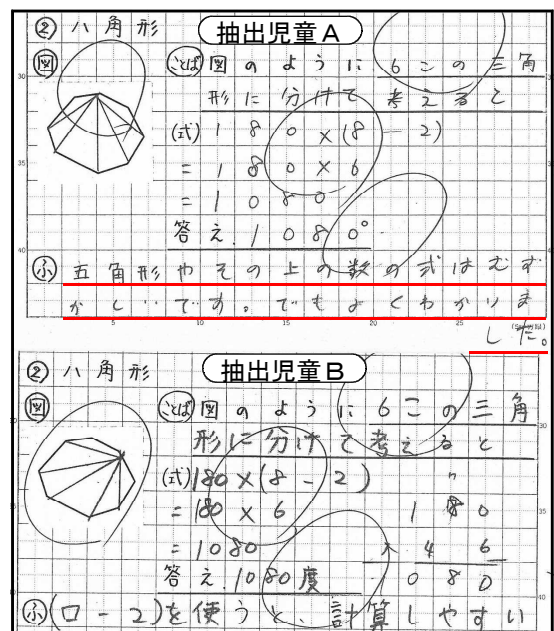 ② 八角形
抽出児童A
図
ことば 図のように6この三角
形に分けて考えると
(式) 180×(8-2)
=180×6
=1080
答え.1080°
ふ 五角形やその上の数の式はむず
かしいです。でもよくわかりま
した。
② 八角形
抽出児童B
図
ことば 図のように6この三角
形に分けて考えると
(式) 180×(8-2)
=180×6
=1080
答え.1080度
180
× 6
1080
ふ (□-2)を使うと、計算しやすい